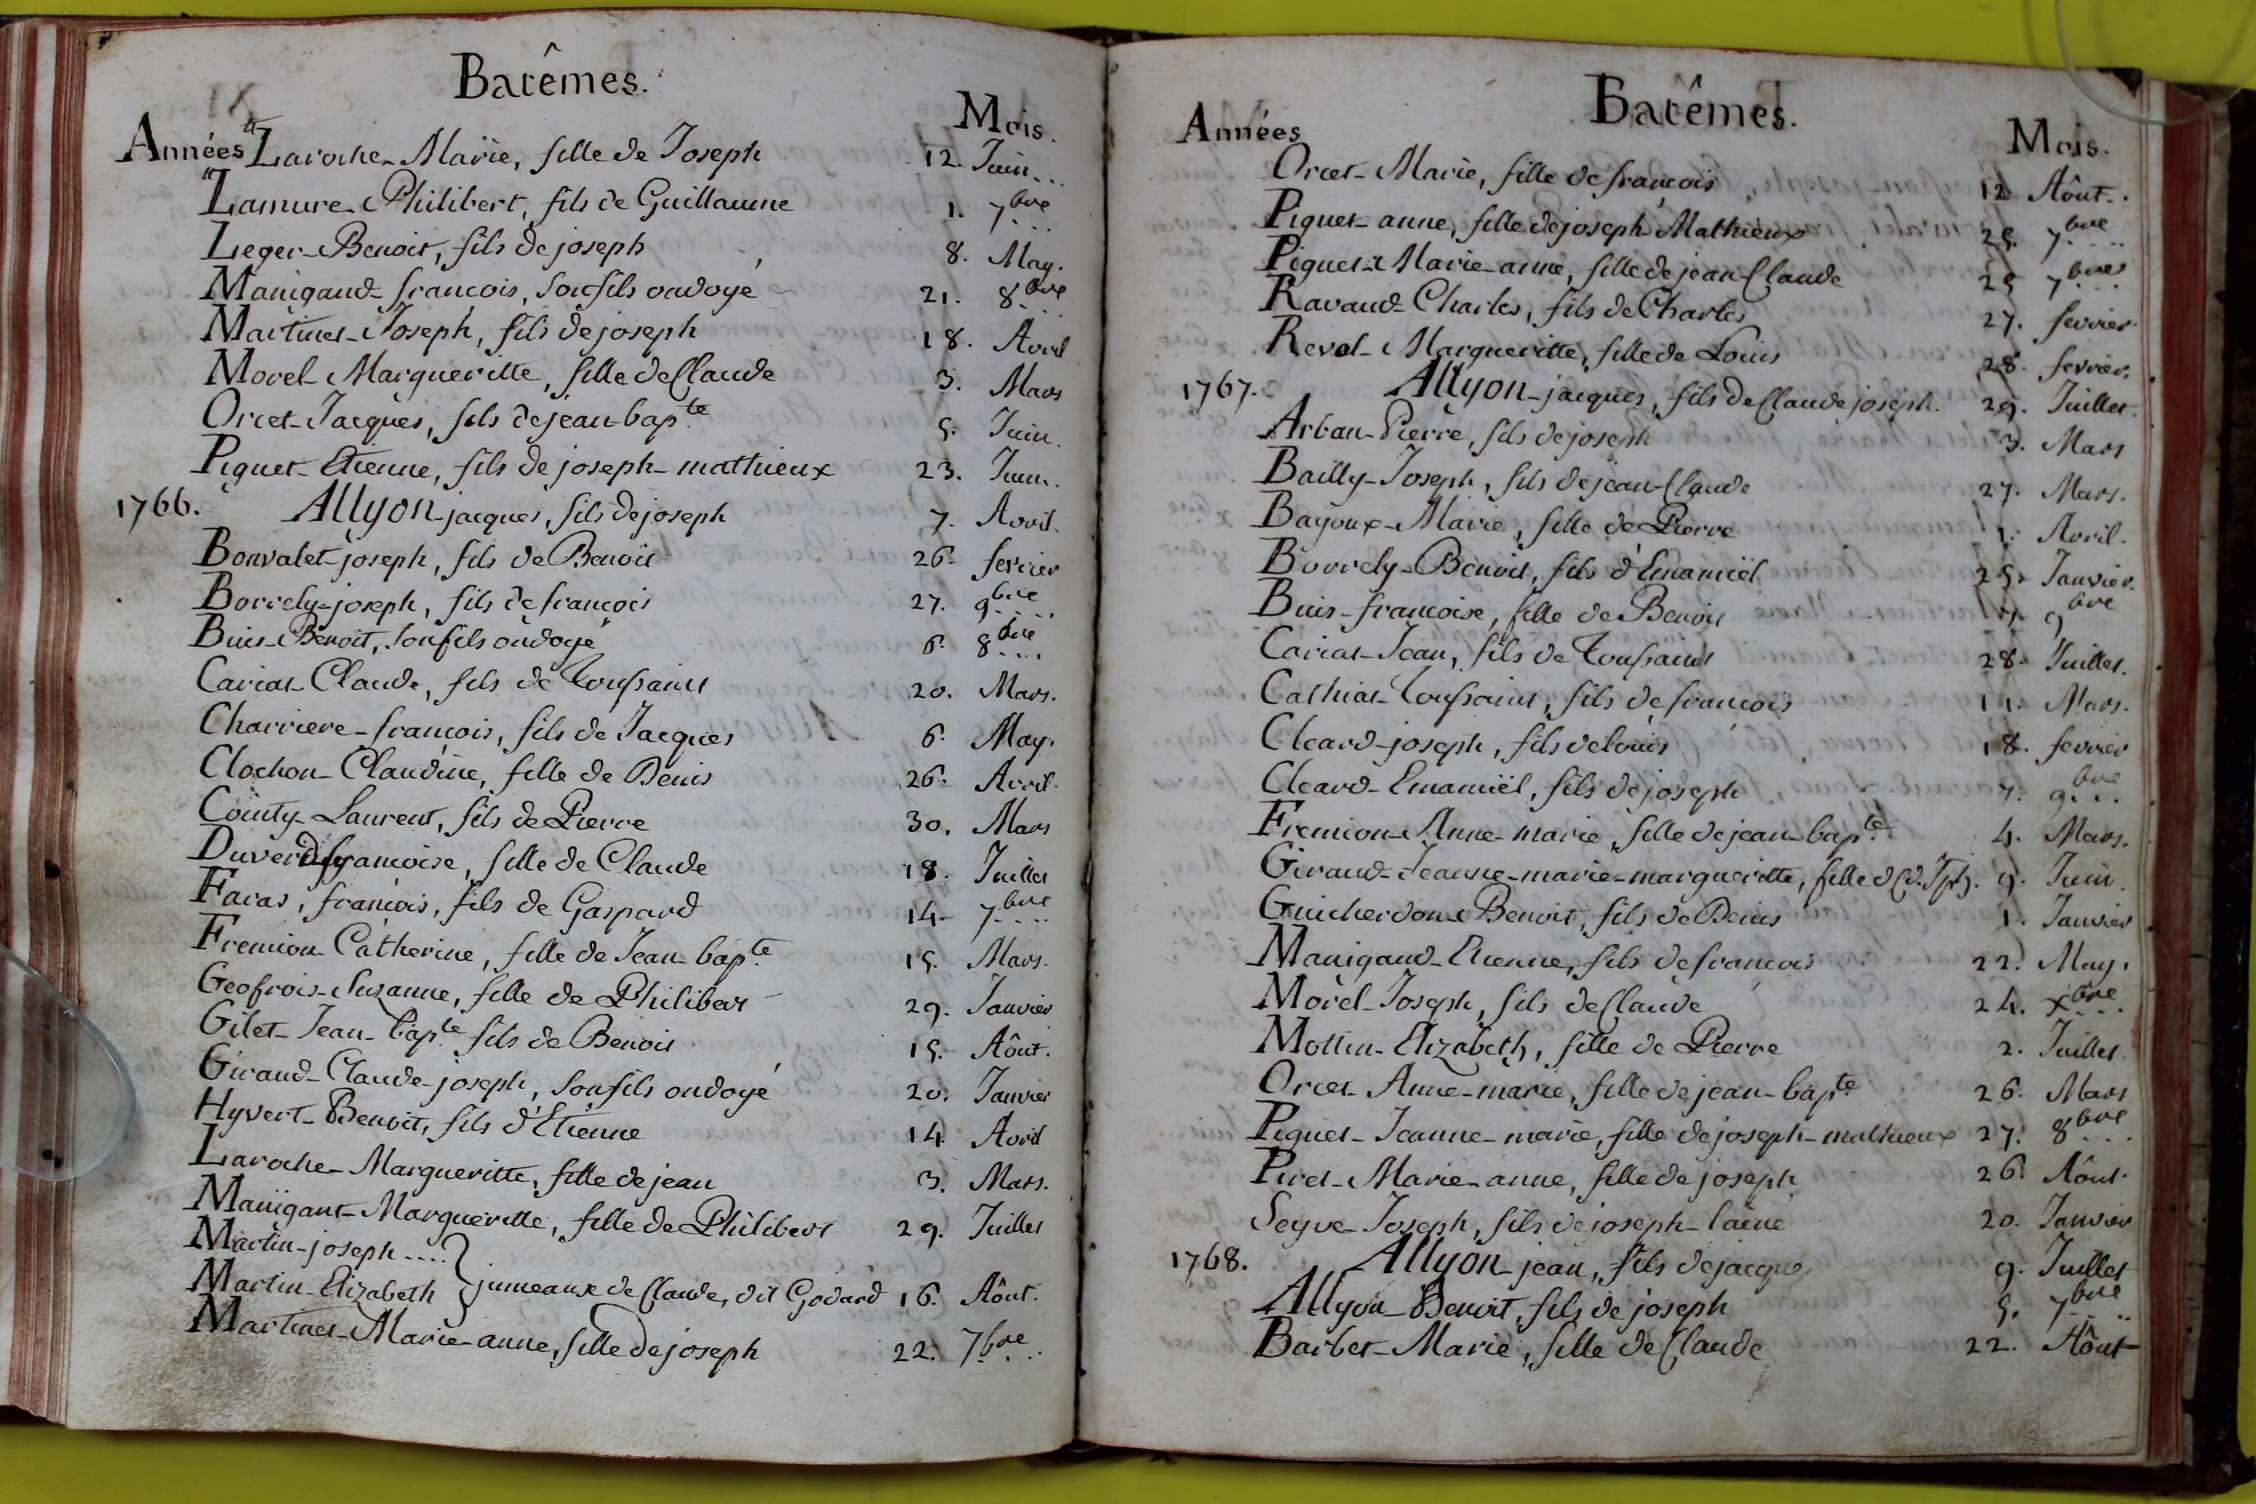 Batêmes.
Années Mois.
Laroche-Marie, fille de Joseph 12. Juin...
Lamure-Philibert, fils de Guillaume 1. 7bre
Leger-Benoit, fils de joseph 8. May.
Manigaud-francois, son fils ondoyé 21. 8bre
Martinet-Joseph, fils de joseph 18. Avril
Morel-Margueritte, fille de Claude 3. Mars
Orcet-Jacques, fils de jean-bapte 5. Juin.
Piquet-Etienne, fils de joseph-mathieux 23. Juin.
1766. Allyon-jacques, fils de joseph 7. Avril.
Bonvalet-joseph, fils de Benoit 26. fevrier
Borrely-joseph, fils de francois 27. 9bre
Buis-Benoit, son fils ondoyé 6. 8bre
Cariat-Claude, fils de Toussaint 20. Mars.
Charriere-francois, fils de Jacques 6. May.
Clochon-Claudine, fille de Denis 26. Avril.
Cointy-Laurent, fils de Pierre 30. Mars
françoise, fille de Claude 18. Juillet
Faras, francois, fils de Gaspard 14. 7bre
Fremion-Catherine, fille de Jean-bapte 15. Mars.
Geofrois-Suzanne, fille de Philibert 29. Janvier
Gilet-Jean-bapte fils de Benoit 15. Aôut.
Giraud-Claude-joseph, son fils ondoyé 20. Janvier
Hyvert-Benoit, fils d'Etienne 14. Avril
Laroche-Margueritte, fille de jean 3. Mars.
Manigant-Margueritte, fille de Philibert 29. Juillet
Martin-joseph ....
Martin-Elizabeth } jumeaux de Claude, dit Godard 16. Aôut.
Martinet-Marie-anne, fille de joseph 22. 7bre
Batêmes.
Années Mois.
Orcet-Marie, fille de francois 12 Aôut.
Piquet-anne, fille de joseph Mathieux 25. 7bre
Piquet-Marie-anne, fille de jean Claude 25 7bre
Ravaud-Charles, fils de Charles 27. fevrier
Revol-Margueritte, fille de Louis 28. fevrier.
1767. Allyon-jacques, fils de Claude joseph. 29. Juillet.
Arban-Pierre, fils de joseph 3. Mars
Bailly-Joseph, fils de jean-Claude 27. Mars.
Bayoux-Marie, fille de Pierre 1. Avril.
Borrely-Benoit, fils d'Emaniël 25. Janvier.
Buis-francoise, fille de Benoit 7. 9bre
Cariat-Jean, fils de Toussaint 28. Juillet.
Cathiat-Toussaint, fils de francois 11. Mars.
Cleard-joseph, fils de louis 18. fevrier
Cleard-Emaniël, fils de joseph 7. 9bre
Fremion-Anne-marie, fille de jean-bapte 4. Mars.
Giraud-Jeanne-marie-margueritte, fille de Cd. Jph. 9. Juin.
Guicherdon-Benoit, fils de Denis 1. Janvier
Manigaud-Etienne, fils de francois 22. May.
Morel-Joseph, fils de Claude 24. xbre
Mottin-Elizabeth, fille de Pierre 2. Juillet.
Orcet-Anne-marie, fille de jean-bapte 26. Mars
Piquet-Jeanne-marie, fille de joseph-mathieux 27. 8bre
Piret-Marie-anne, fille de joseph 26. Aôut.
Seyve-Joseph, fils de joseph-laîné 20. Janvier
1768. Allyon-jean, fils de jacques 9. Juillet
Allyon-Benoit, fils de joseph 5. 7bre
Barbet-Marie, fille de Claude 22. Aôut